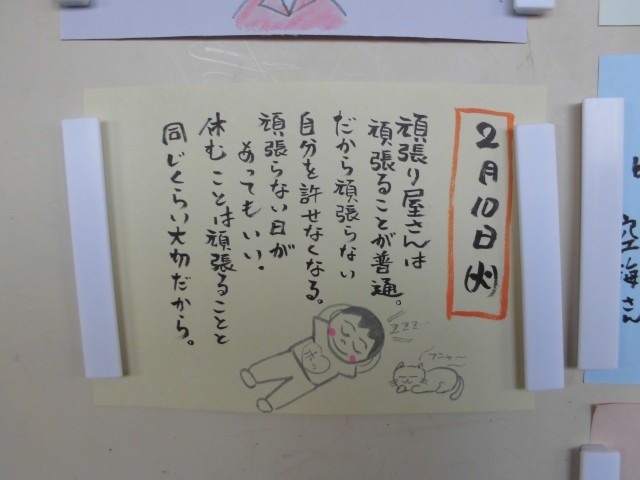 2月10日(火)
頑張り屋さんは
頑張ることが普通。
だから頑張らない
自分を許せなくなる。
頑張らない日が
あってもいい。
休むことは頑張ることと
同じくらい大切だから。
zzzz
フニャー
空海さん